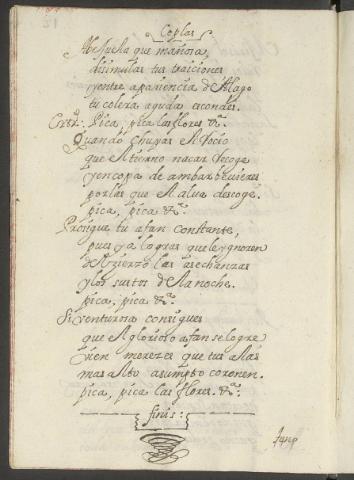 Coplas
Abejuela que mañosa
disimulas tus traiciones
y entre apariencia de Alago
tu colera aguda esconde.
Pica, pica las flores &ª.
Quando chupas el rocio
que el tierno nacar recoge
y en copa de ambar bevieres
por las que el alua descoge.
pica, pica &ª.
Prosigue tu afan constante,
pues ya logras que le ignoren
del zierzo las asechanzas
y los sustos de la noche.
pica, pica &ª.
Si venturosa consigues
que el glorioso afan se logre
vien mereces que tus alas
mas alto asumpto coronen.
pica, pica las flores. &ª.
finis: